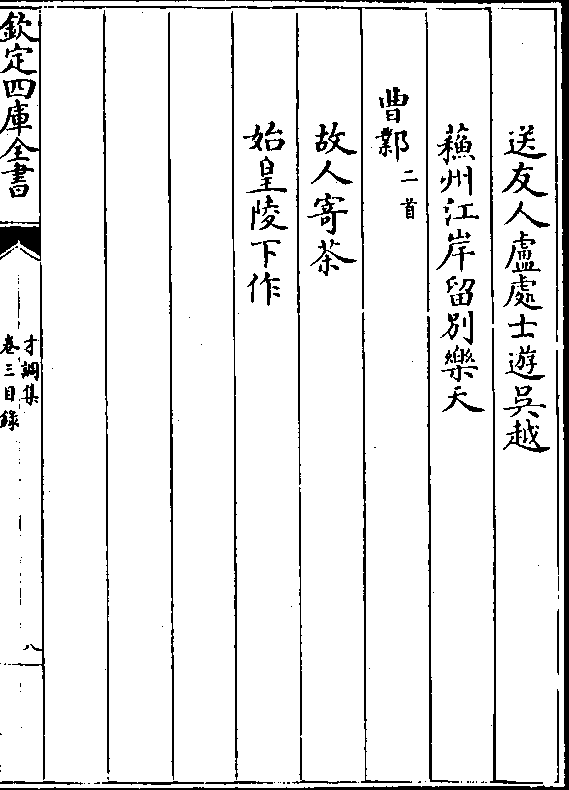 送友人盧處士遊吳越
蘓州江岸留別樂天
曹鄴二首
故人寄茶
始皇陵下作
欽定四庫全書
才調集
卷三目錄
八